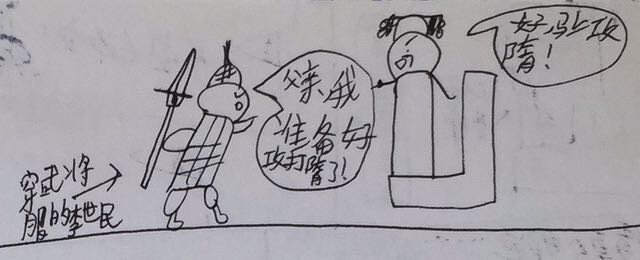 穿武将
服的李世民
父亲,我
准备好
攻打隋了!
好,马上攻
隋!